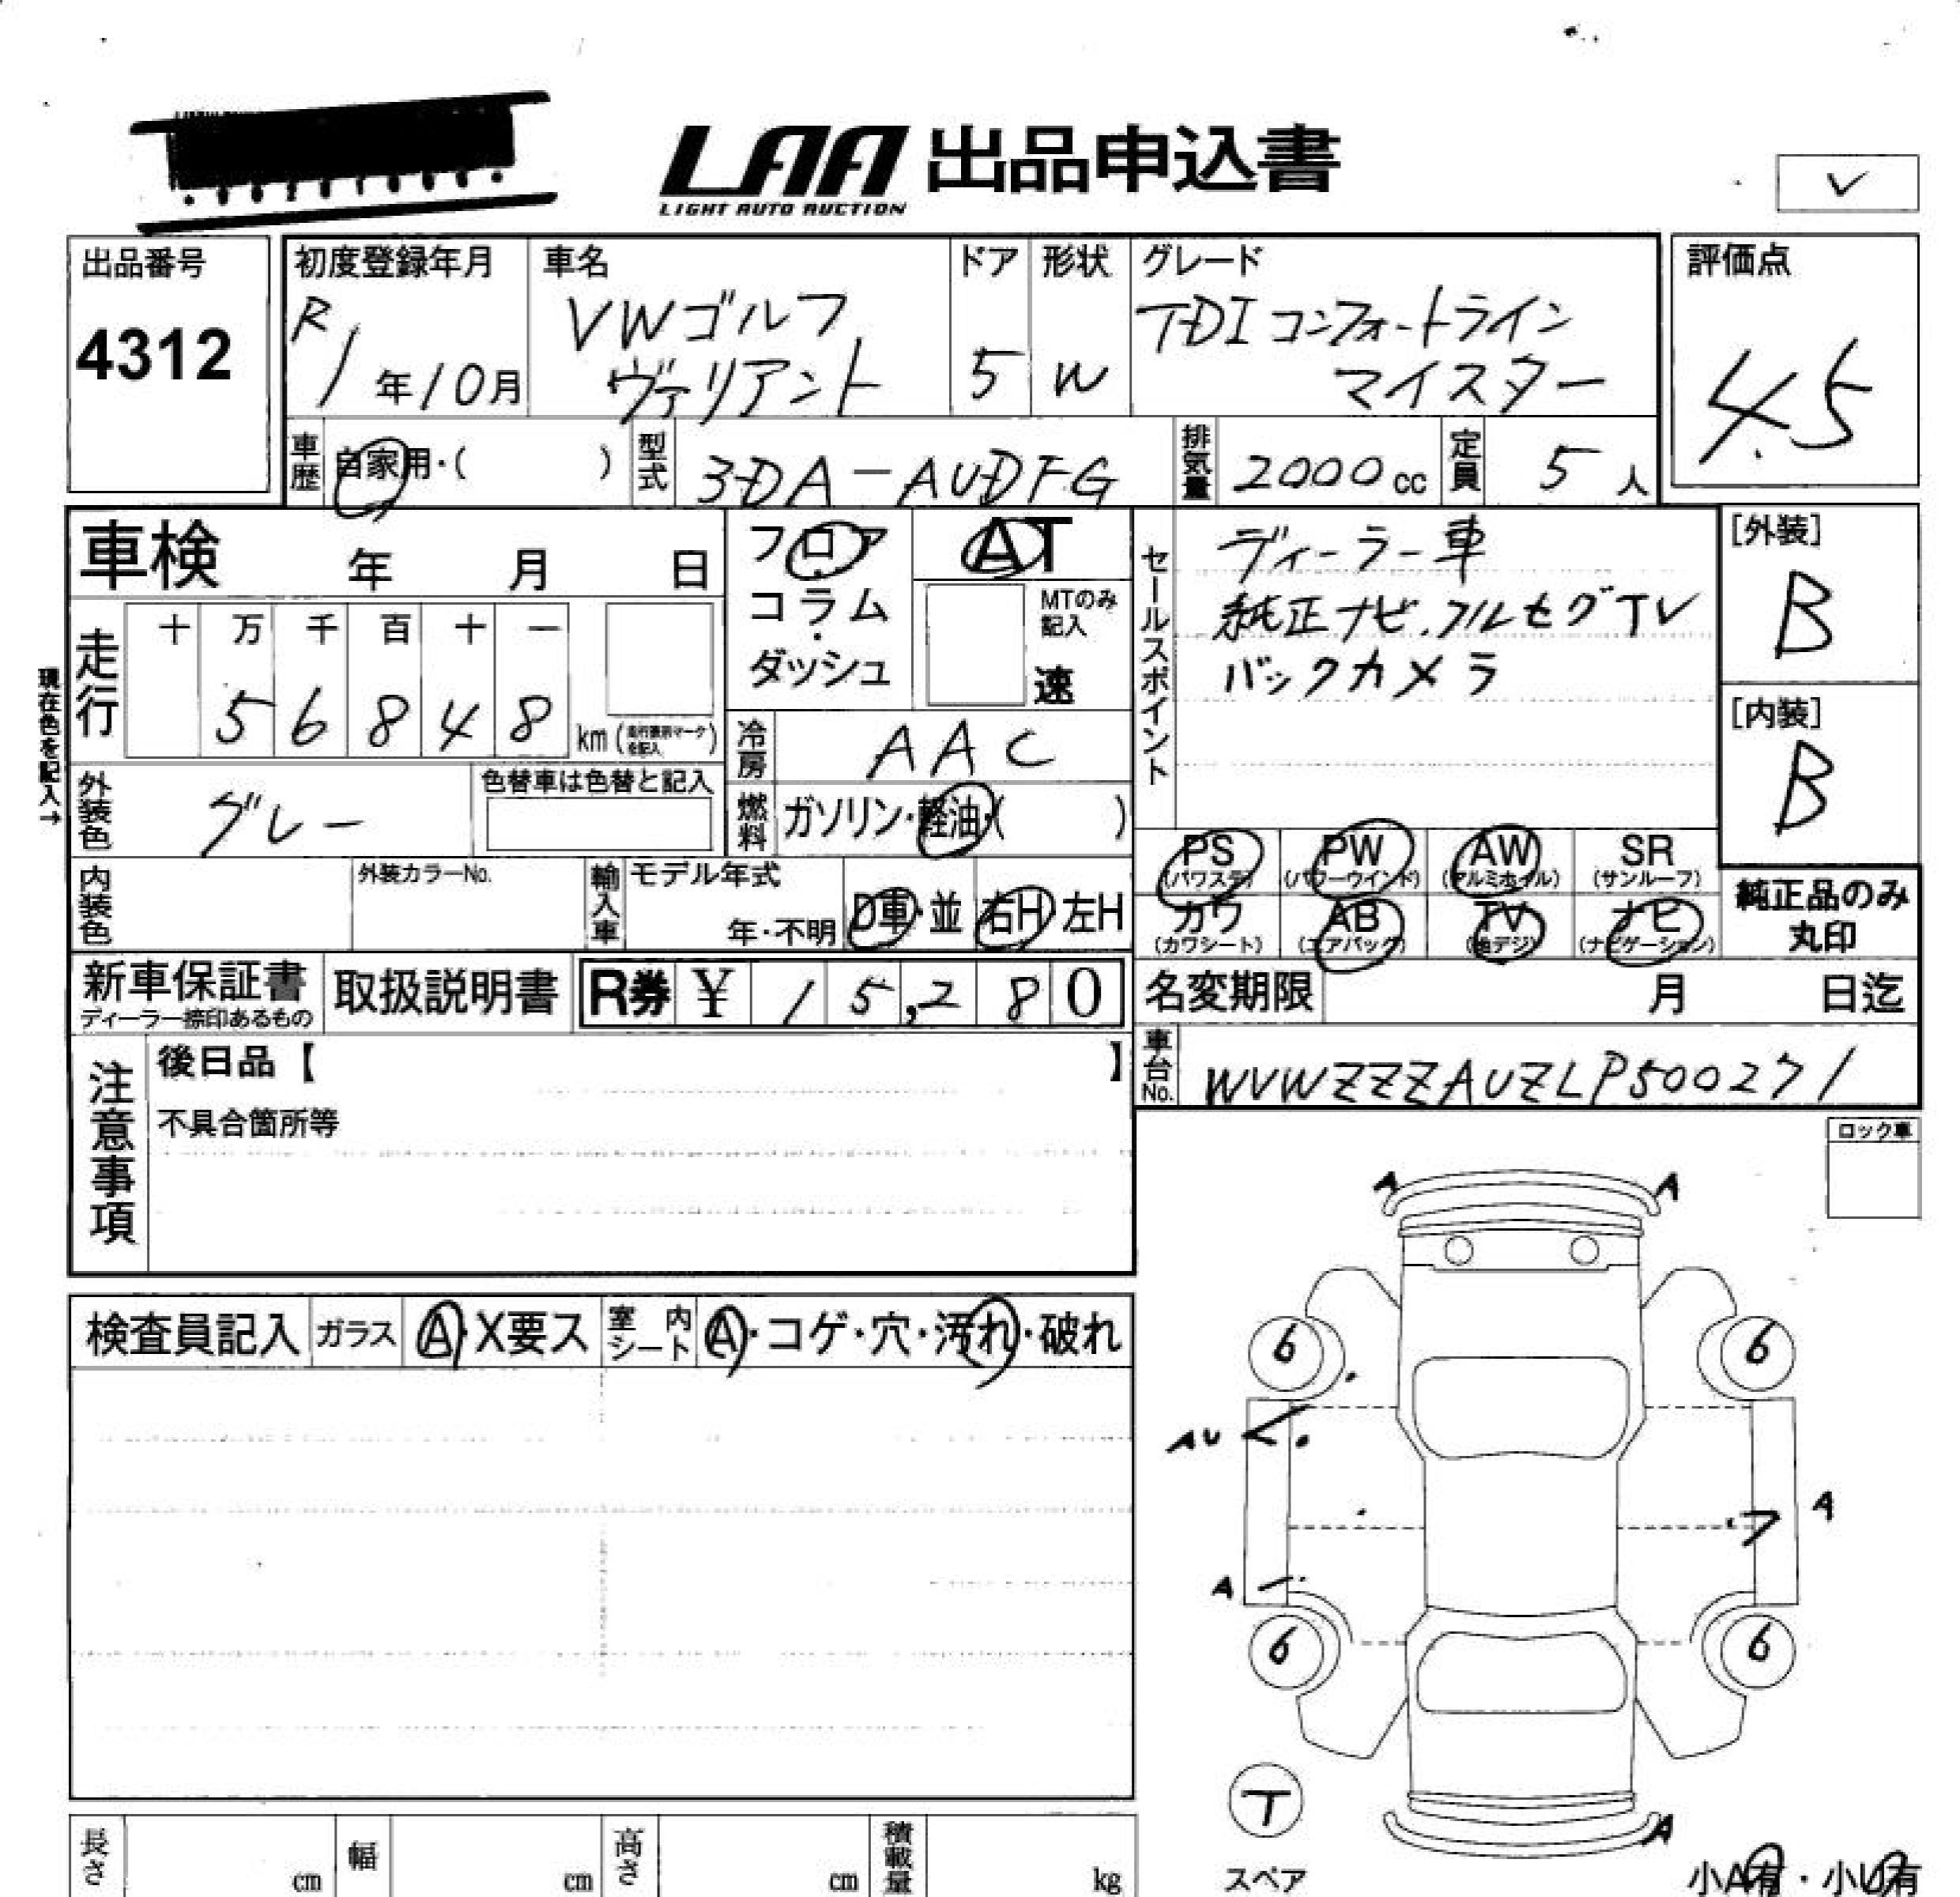 LAA 出品申込書
LIGHT AUTO AUCTION
✓
出品番号
4312
初度登録年月
R1年10月
車名
VWゴルフ
ヴァリアント
ドア
5
形状
W
グレード
TDI コンフォートライン
マイスター
評価点
4.5
車歴 自家用・( )
型式 3DA-AUDFG
排気量 2000cc
定員 5人
車検 年 月 日
フロア
コラム
・
ダッシュ
AT
MTのみ
記入
速
セールスポイント
ディーラー車
純正ナビ.フルセグTV
バックカメラ
[外装]
B
[内装]
B
現在色を記入→
走行
十 万 千 百 十 一
5 6 8 4 8 km
冷房 AAC
外装色 グレー
色替車は色替と記入
燃料 ガソリン・軽油・( )
内装色
外装カラーNo.
輸入車 モデル年式
年・不明
D車・並
右H 左H
PS (パワステ)
PW (パワーウインド)
AW (アルミホイル)
SR (サンルーフ)
カワ (カワシート)
AB (エアバッグ)
TV (地デジ)
ナビ (ナビゲーション)
純正品のみ
丸印
新車保証書
ディーラー捺印あるもの
取扱説明書
R券 ¥ 15,280
名変期限 月 日迄
車台No. WVWZZZAUZLP500271
注意事項
後日品【 】
不具合箇所等
ロック車
検査員記入
ガラス A・X要ス
室内シート A・コゲ・穴・汚れ・破れ
A A
6 6
AU
A
A
6 6
T
スペア
A
小A有・小U有
長さ cm
幅 cm
高さ cm
積載量 kg